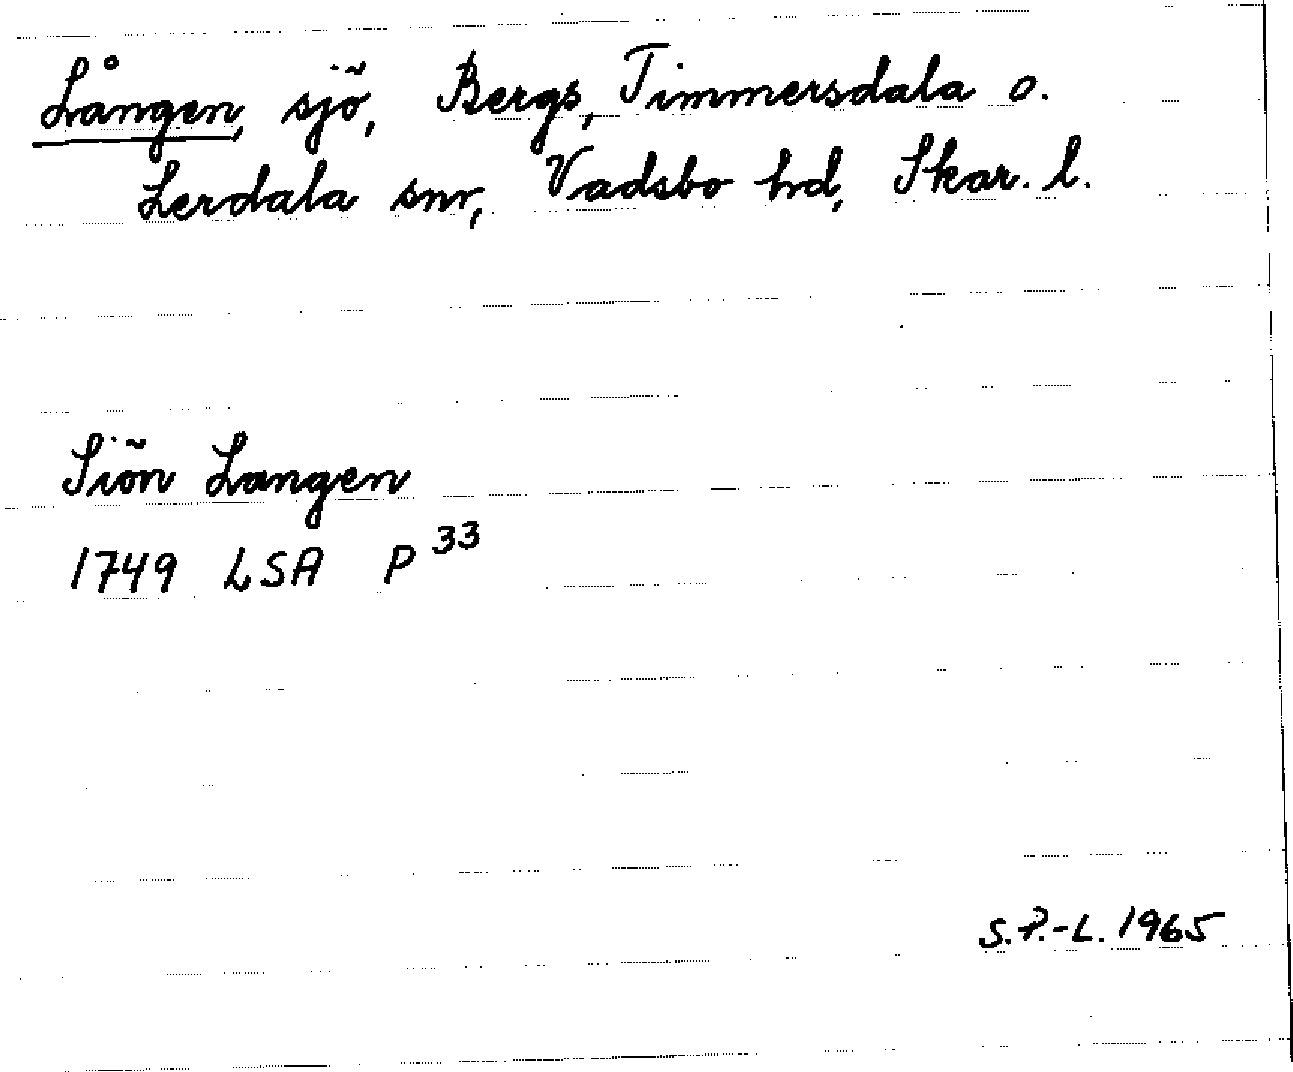 Lången, sjö, Bergs, Timmersdala o.
Lerdala snr, Vadsbo hd, Skar. l.
Siön Langen
1749 LSA P 33
S.P.-L. 1965